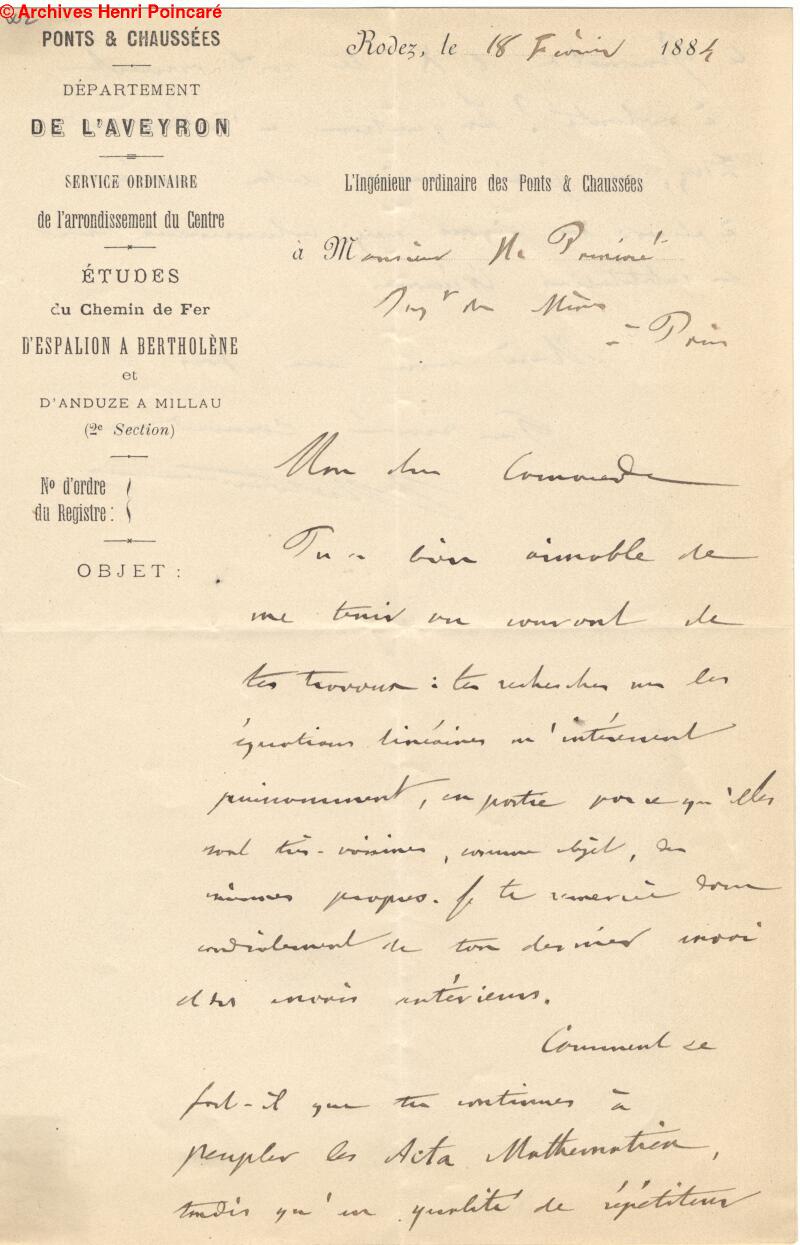 © Archives Henri Poincaré
PONTS & CHAUSSÉES
DÉPARTEMENT
DE L'AVEYRON
SERVICE ORDINAIRE
de l'arrondissement du Centre
ÉTUDES
du Chemin de Fer
D'ESPALION A BERTHOLÈNE
et
D'ANDUZE A MILLAU
(2e Section)
No d'ordre
du Registre :
OBJET :
Rodez, le 18 Février 1884
L'Ingénieur ordinaire des Ponts & Chaussées
à Monsieur Poincaré
Ingr des Mines
à Paris
Mon cher Camarade
Tu es bien aimable de
me tenir au courant de
tes travaux : tes recherches sur les
équations linéaires m'intéressent
puissamment, en partie parce qu'elles
sont très-voisines, comme objet, des
miennes propres. Je te remercie donc
cordialement de ton dernier envoi
et des envois antérieurs.
Comment se
fait-il que tu continues à
peupler les Acta Mathematica,
tandis qu'en qualité de répétiteur